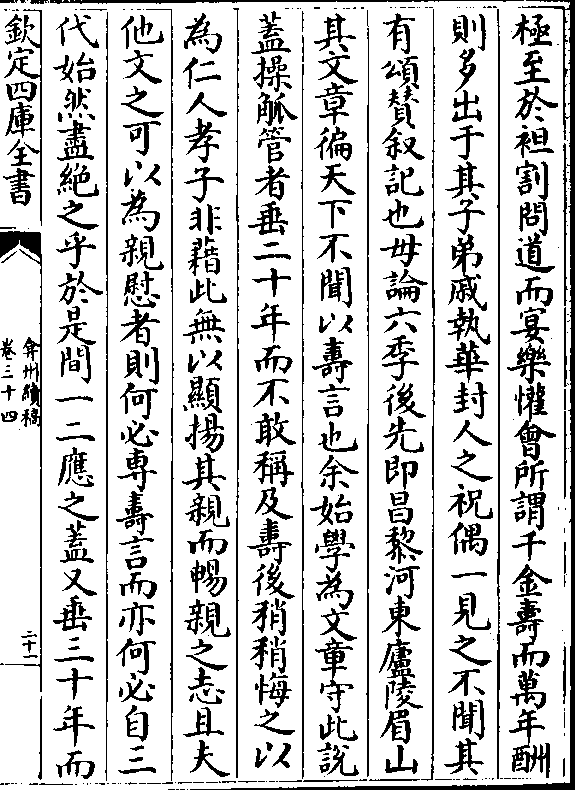 極至於袒割問道而宴樂懽會所謂千金壽而萬年酬
則多出于其子弟戚執華封人之祝偶一見之不聞其
有頌賛叙記也毋論六季後先即昌黎河東廬陵眉山
其文章徧天下不聞以壽言也余始學為文章守此説
蓋操觚管者垂二十年而不敢稱及壽後稍稍悔之以
為仁人孝子非藉此無以顯揚其親而暢親之志且夫
他文之可以為親慰者則何必専壽言而亦何必自三
代始然盡絶之乎於是間一二應之蓋又垂三十年而
欽定四庫全書
弇州續稿
卷三十四
二十一